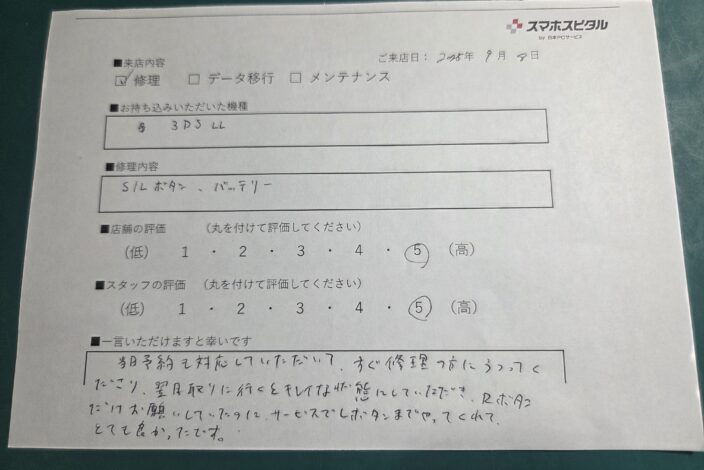 スマホスピタル
by 日本PCサービス
ご来店日：2025年 9月 8日
■来店内容
☑ 修理 □ データ移行 □ メンテナンス
■お持ち込みいただいた機種
3DS LL
■修理内容
S/L ボタン、バッテリー
■店舗の評価 （丸を付けて評価してください）
（低） 1 ・ 2 ・ 3 ・ 4 ・ 5 （高）
■スタッフの評価 （丸を付けて評価してください）
（低） 1 ・ 2 ・ 3 ・ 4 ・ 5 （高）
■一言いただけますと幸いです
当日予約も対応していただいて、すぐ修理の方にうつってく
ださり、翌日取りに行くとキレイな状態にしていただき、Rボタン
だけお願いしていたのに、サービスでLボタンまでやってくれて、
とても良かったです。